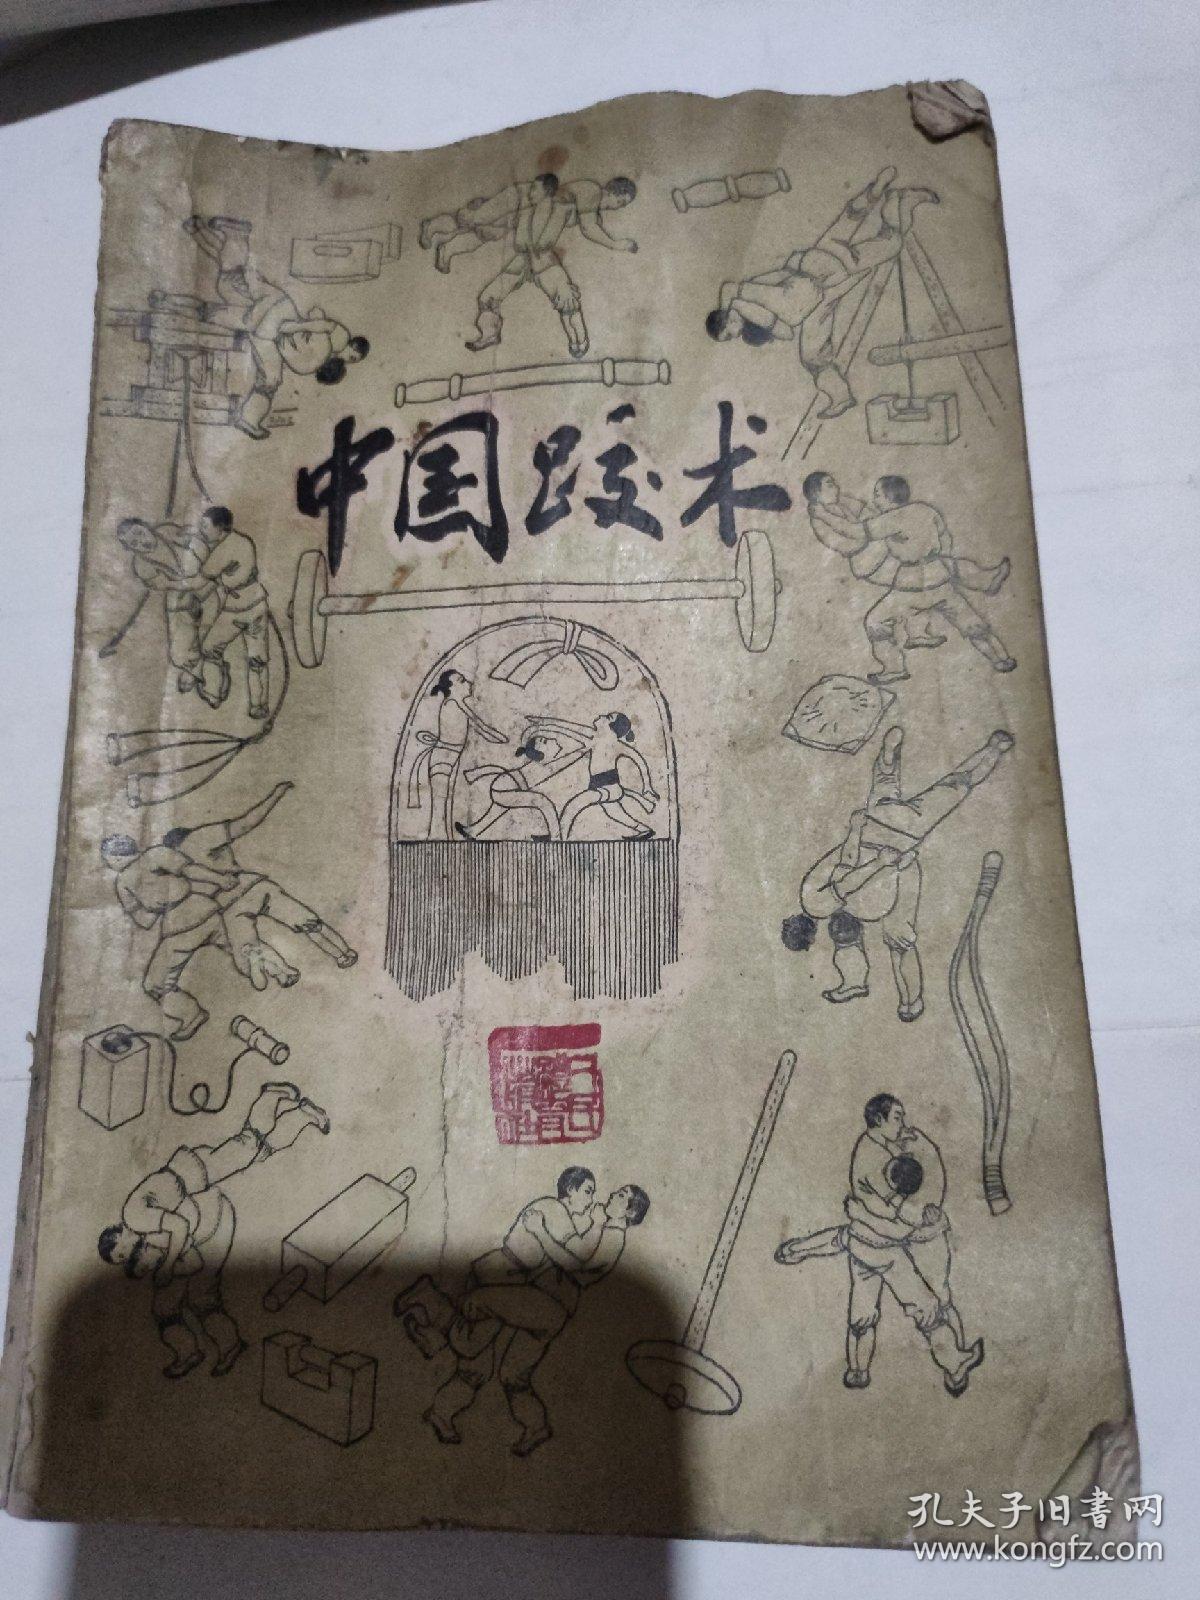 中国跤术
孔夫子旧書网
www.kongfz.com